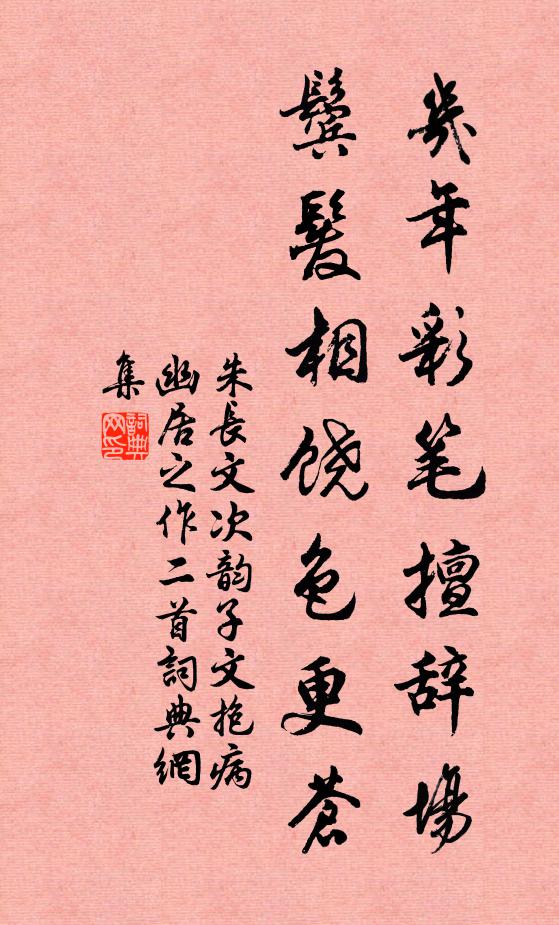 幾年彩笔擅辞場
鬓髮相饶色更蒼
朱長文次韵子文抱病
幽居之作二首詞典網
集
詞典
网印